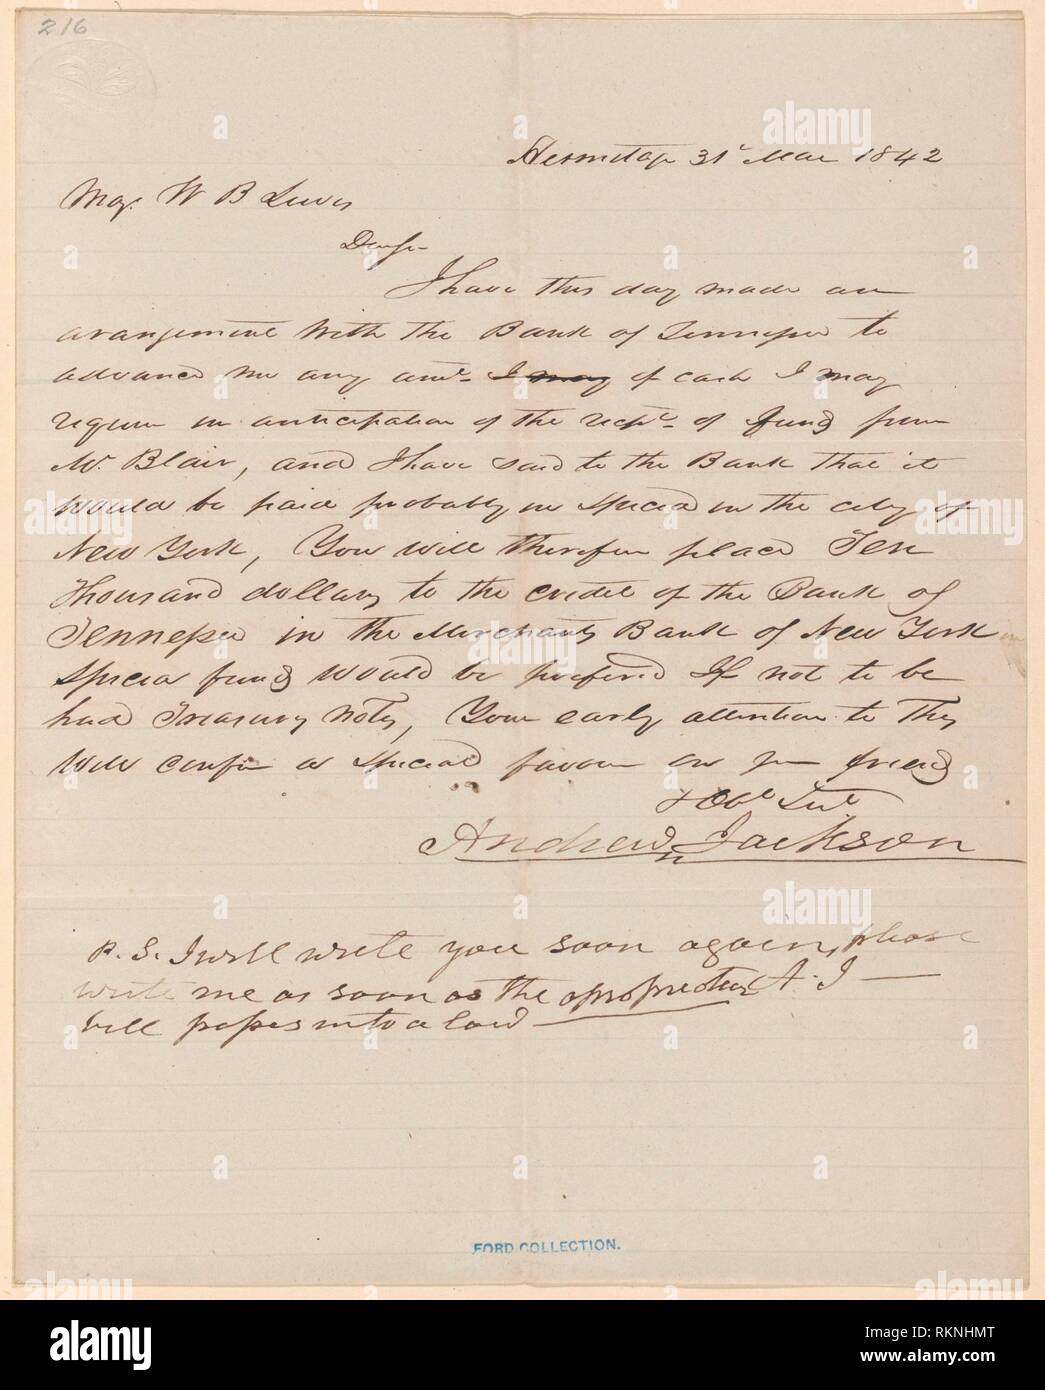 216
Hermitage 31st Mar 1842
Maj. W B Lewis
Dear sir
I have this day made an
arangement With the Bank of Tennessee to
advance me any amt. I may of cash I may
require in anticipation of the recpt. of funds from
Mr. Blair, and I have said to the Bank that it
Would be paid probably in Specia in the city of
New York, You will therefore place Ten
Thousand dollars to the credit of the Bank of
Tennessee in the Merchants Bank of New York in
Specia funds Would be prefered If not to be
had Treasury notes, Your early attention to This
Will confer a Special favour on your friend
& Obt Svt
Andrew Jackson
P. S. I will write you soon again, please
write me as soon as the appropriation A. J
bill passes into a law
FORD COLLECTION.
alamy
Image ID: RKNHMT
www.alamy.com